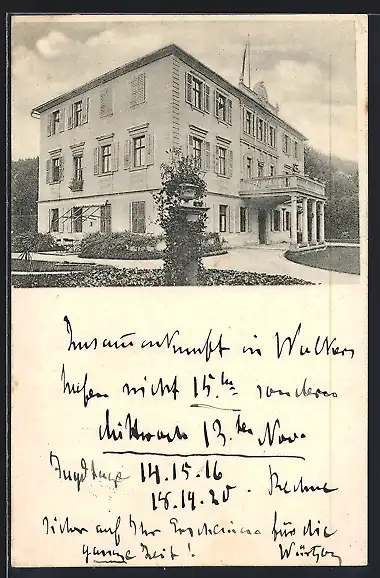 Zusammenkunft in Walkers
hofen nicht 15.ten sondern
Mittwoch 13.ten Nov.
Jagdtage 14.15.16
18.19.20. Rechne
sicher auf Ihr Erscheinen für die
ganze Zeit!